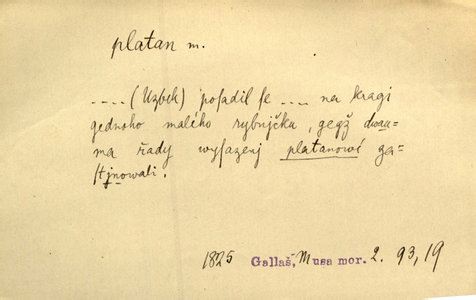 platan m.
.... (Uzbek) posadil se .... na kragi
gednoho malého rybnjčku, gegž dwau-
ma řady wysazenj platanowé za-
stjnowali.
1825 Gallaš, Musa mor. 2. 93, 19